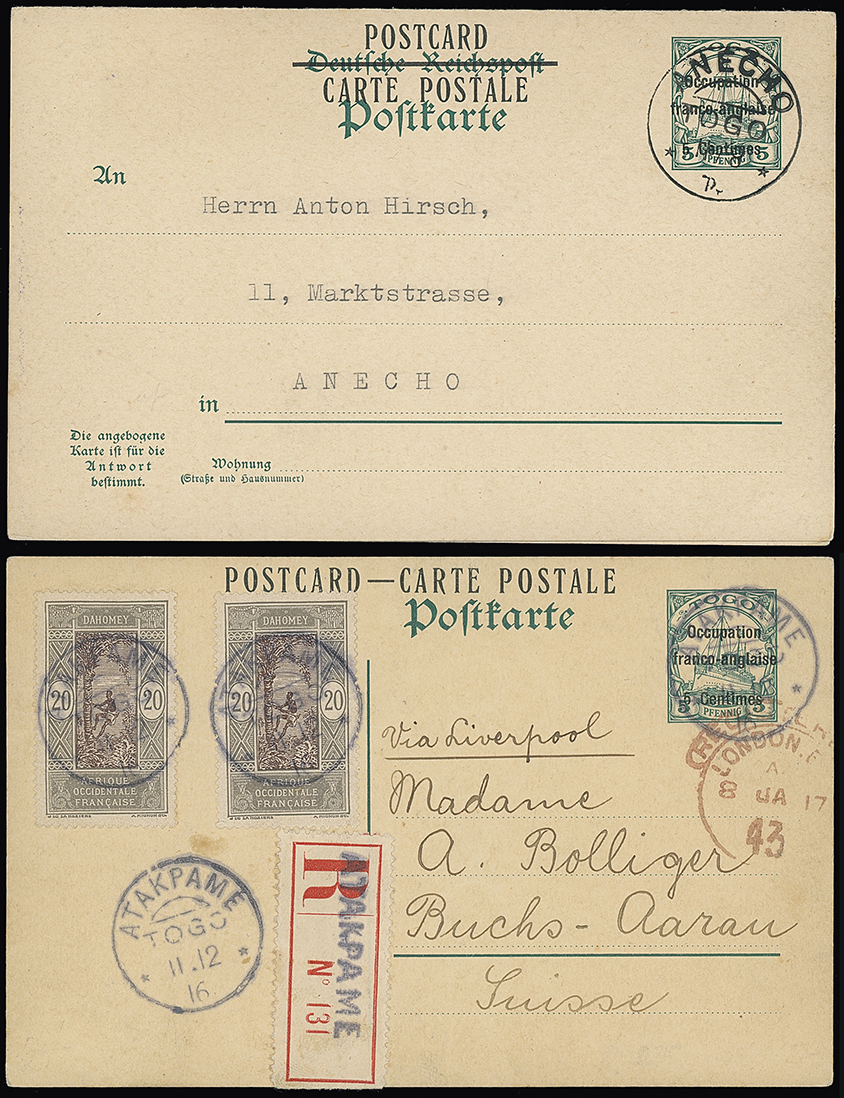 POSTCARD
Deutsche Reichspost
CARTE POSTALE
Postkarte
TOGO
Occupation
franco-anglaise
5 Centimes
5 PFENNIG 5
ANECHO
TOGO
An
Herrn Anton Hirsch,
11, Marktstrasse,
ANECHO
in
Die angebogene
Karte ist für die
Antwort
bestimmt.
Wohnung
(Straße und Hausnummer)
POSTCARD—CARTE POSTALE
Postkarte
DAHOMEY
20 20
AFRIQUE
OCCIDENTALE
FRANÇAISE
DAHOMEY
20 20
AFRIQUE
OCCIDENTALE
FRANÇAISE
TOGO
Occupation
franco-anglaise
5 Centimes
5 PFENNIG 5
ATAKPAME
LONDON
A
8 JA 17
43
Via Liverpool
Madame
A. Bolliger
Buchs-Aarau
Suisse
ATAKPAME
TOGO
11.12
16
R
ATAKPAME
Nº 131